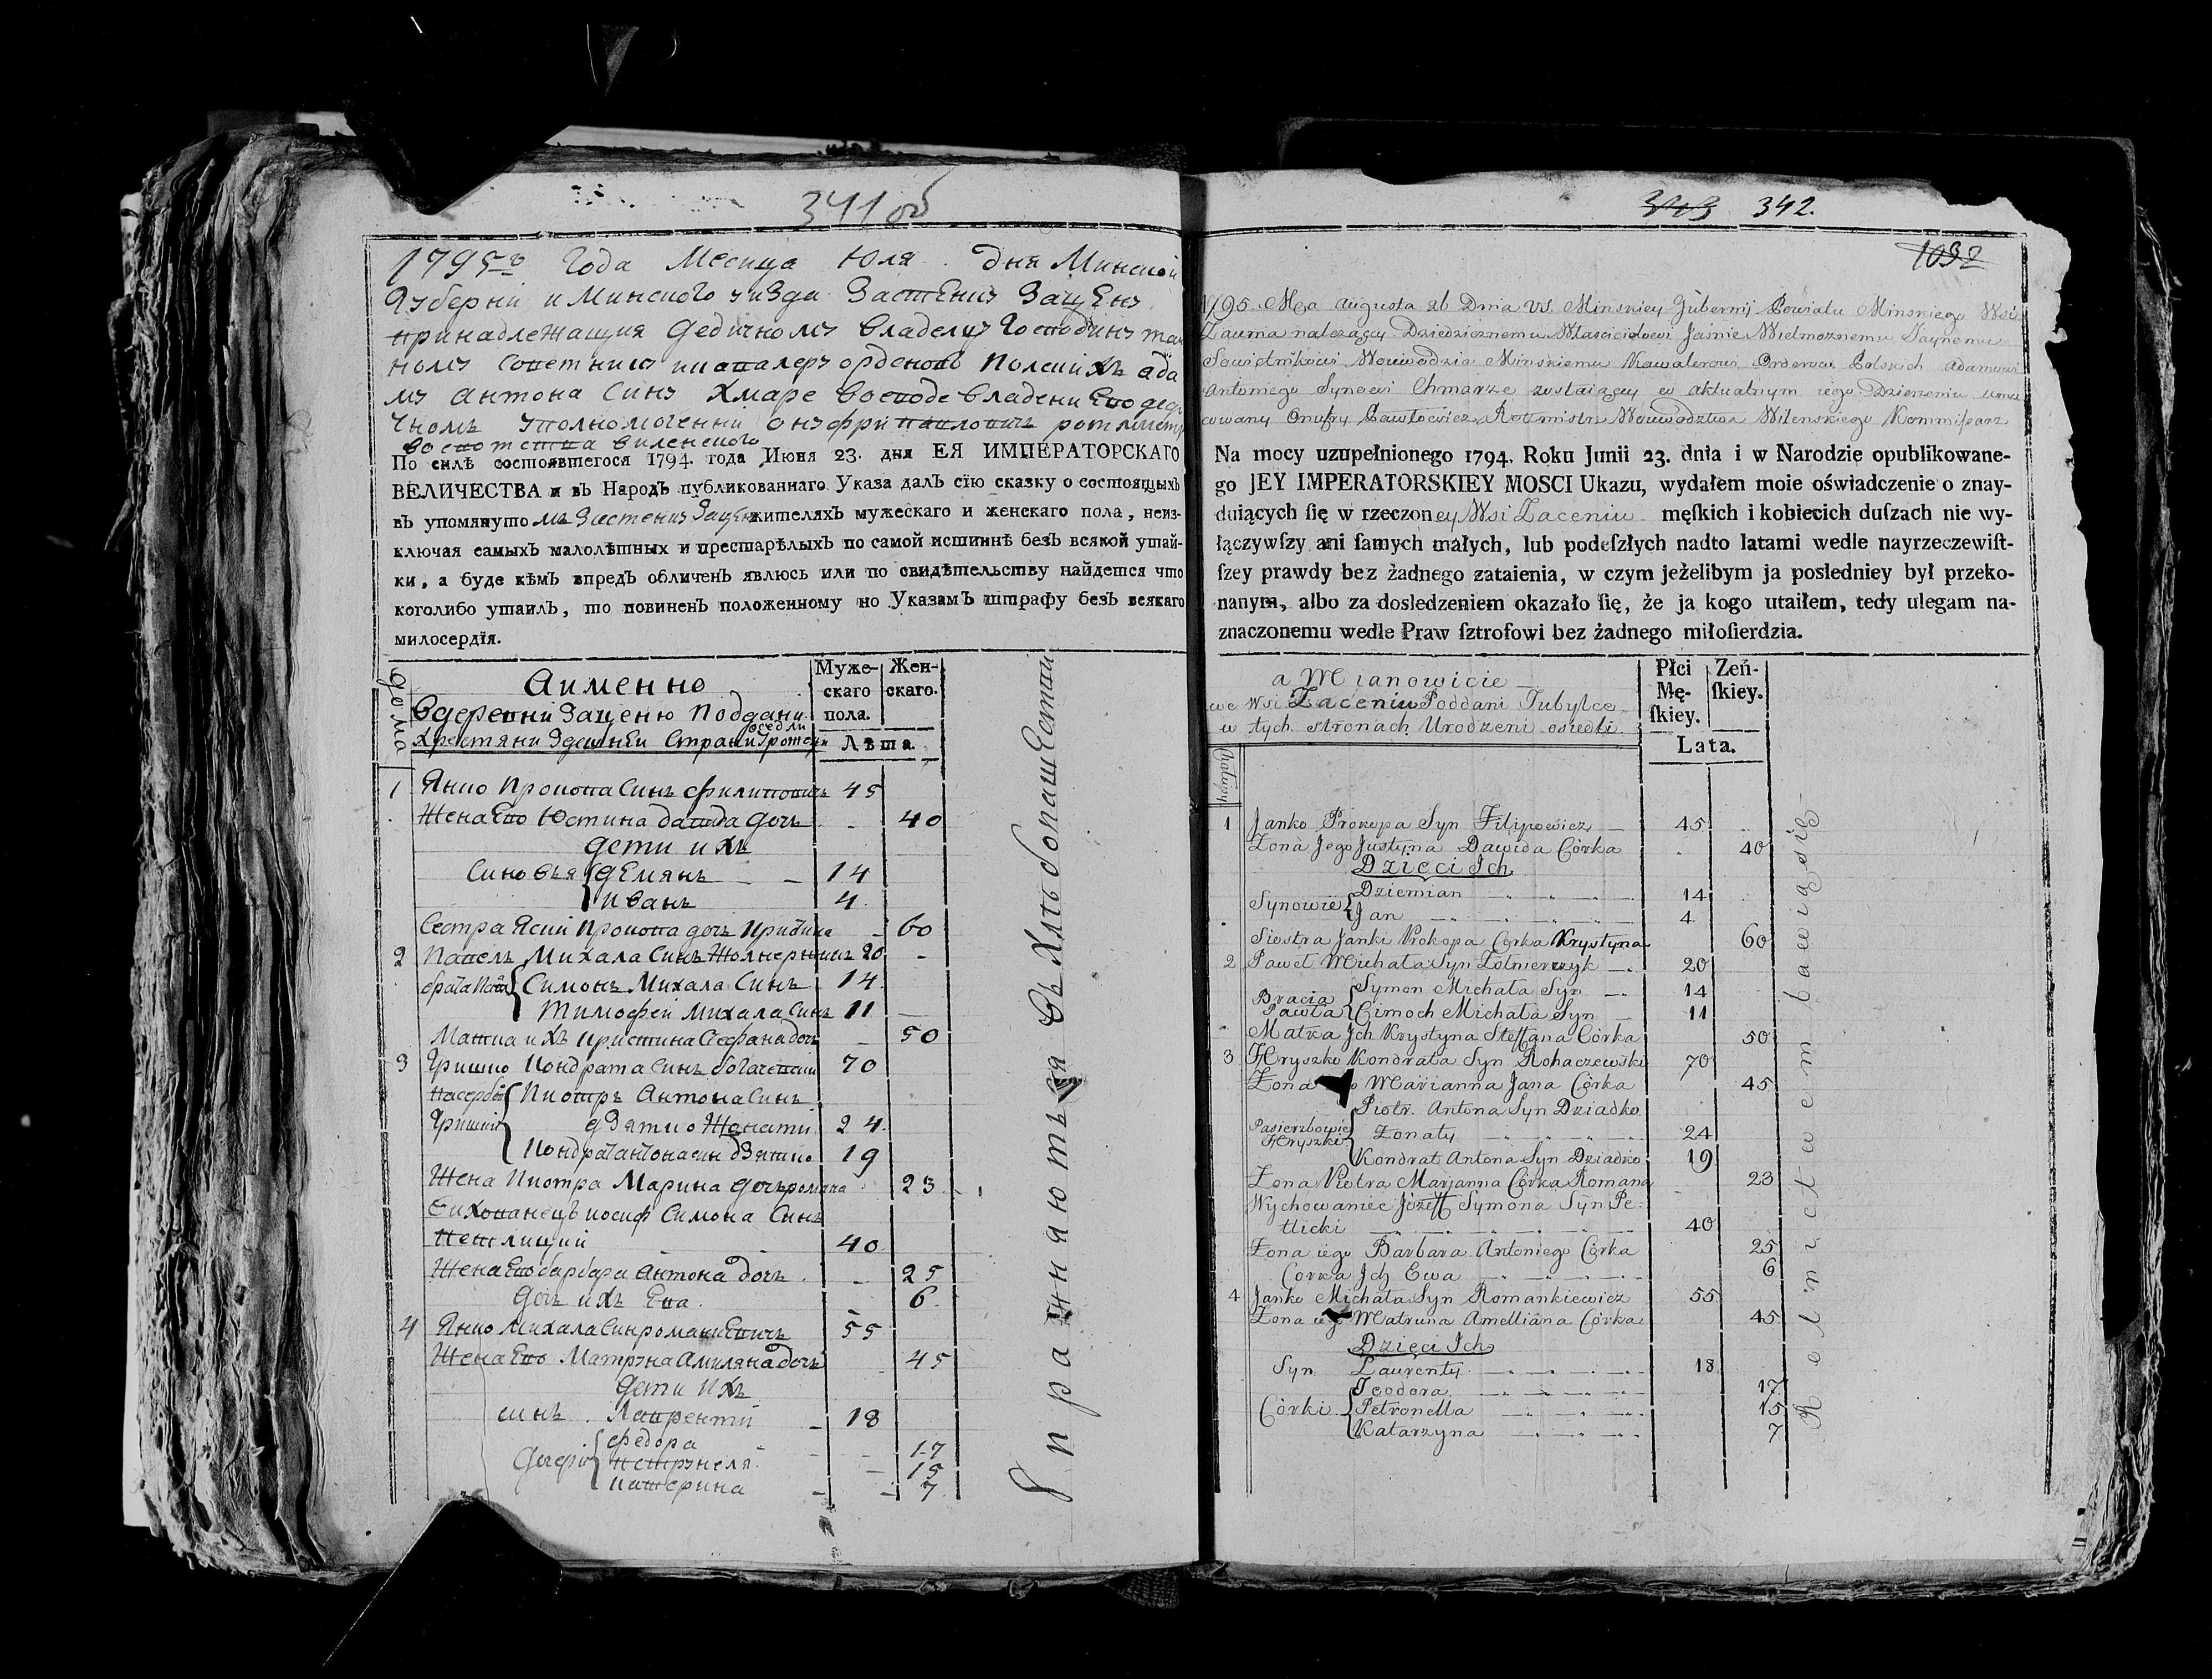 341 об
1795го Года Месеца Юля . дня Минской
Губерни и Минского уизда Застенку Зацену
принадлежащия Дедичному Владелцу Господину тай
ному Советнику и кавалеру орденовъ Полскихъ ада
му антона Сину Хмаре Воеводе Владени Ево деди
чномъ уполномоченни онуфри павловичъ ротмистръ
Воеводства виленского
По силѣ состоявшегося 1794. года Июня 23. дня ЕЯ ИМПЕРАТОРСКАГО
ВЕЛИЧЕСТВА и въ Народъ публикованнаго Указа далъ сїю сказку о состоящыхъ
въ упомянутомъ Застенку Зацену жителяхъ мужескаго и женскаго пола, неиз-
ключая самыхъ малолѣтныхъ и престарѣлыхъ по самой истиннѣ безъ всякой утай-
ки, а буде кѣмъ впредъ обличенъ явлюсь или по свидѣтельству найдется что
коголибо утаилъ, то повиненъ положенному по Указамъ штрафу безъ всякаго
милосердїя.
дома
Аименно
Вдеревни Заценю Поддани
Хрестяни Здешнеи Страни Уроженни
осѣдли
Муже-
скаго
пола.
Жен-
скаго.
Лѣта.
1 Янко Прокопа Синъ Филиповичъ 45
Жена Ево Юстина Давида дочь 40
дети ихъ
Синовья Демянъ 14
Иванъ 4
Сестра Яски Прокопа дочь Кристина 60
2 Павелъ Михала Синъ Жолнерчикъ 20
брата Павла Симонъ Михала Синъ 14
Тимофей Михала Синъ 11
Матка ихъ Кристина Стефана дочь 50
3 Гришко Кондрата Синъ Рогачевский 70
Пасербы Гришки Пиотръ Антона Синъ
дзятко Жонати 24
Кондрат антона син дзятко 19
Жена Пиотра Марина дочь романа 23
Вихованецъ иосиф Симона Синъ
Петлицкий 40
Жена Ево барбара Антона дочь 25
дочь ихъ Ева 6
4 Янко Михала Син романкевичъ 55
Жена Ево Матруна Амиляна дочь 45
дети ихъ
синъ Лаврентий 18
дочери Федора 17
Петрунеля 15
Катерина 7
Упражняютъся въ Хлѣбопашестви
343 342.
1032
1795. Mca Augusta 26 Dnia VS. Minskiey Gubernij Powiatu Minskiego Wsi
Zacenia należącey Dziedzicznemu Własciciełowi Jaśnie Wielmożnemu Taynemu
Sowietnikowi Woiewodzie Minskiemu Kawalerowi Orderow Polskich Adamowi
Antoniego Synowi Chmarze zostaiącey w aktualnym iego Dzierzeniu umo
cowany Onufry Pawłowicz Rotmistrz Woiewodztwa Wilenskiego Kommissarz
Na mocy uzupełnionego 1794. Roku Junii 23. dnia i w Narodzie opublikowane-
go JEY IMPERATORSKIEY MOSCI Ukazu, wydałem moie oświadczenie o znay-
duiących ſię w rzeczoney Wsi Zaceniu męſkich i kobiecich duſzach nie wy-
łączywſzy ani ſamych małych, lub podeſzłych nadto latami wedle nayrzeczewiſt-
ſzey prawdy bez żadnego zataienia, w czym jeżelibym ja posledniey był przeko-
nanym, albo za dosledzeniem okazało ſię, że ja kogo utaiłem, tedy ulegam na-
znaczonemu wedle Praw ſztrofowi bez żadnego miłoſierdzia.
a Mianowicie
we Wsi Zaceniu Poddani Tubylce
w tych stronach Urodzeni osiedli
Płci
Mę-
ſkiey.
Zeń-
ſkiey.
Lata.
Chałupy
1 Janko Prokopa Syn Filipowicz 45
Zona Jego Justyna Dawida Córka 40
Dzieci Ich
Synowie Dziemian 14
Jan 4
Siostra Janki Prokopa Corka Krystyna 60
2 Paweł Michała Syn Zołnierczyk 20
Bracia Pawła Symon Michała Syn 14
Cimoch Michała Syn 11
Matka Ich Krystyna Steffana Córka 50
3 Hryszko Kondrata Syn Rohaczewski 70
Zona Marianna Jana Córka 45
Pasierzbowie Hryszki Piotr Antona Syn Dziadko
Zonaty 24
Kondrat Antona Syn Dziadko 19
Zona Piotra Marjanna Córka Romana 23
Wychowaniec Józeff Symona Syn Pe-
tlicki 40
Zona iego Barbara Antoniego Córka 25
Corka Ich Ewa 6
4 Janko Michała Syn Romankiewicz 55
Zona iego Matruna Amelliana Córka 45
Dzieci Ich
Syn Laurenty 18
Córki Teodora 17
Petronella 15
Katarzyna 7
Rolnictwem bawią się